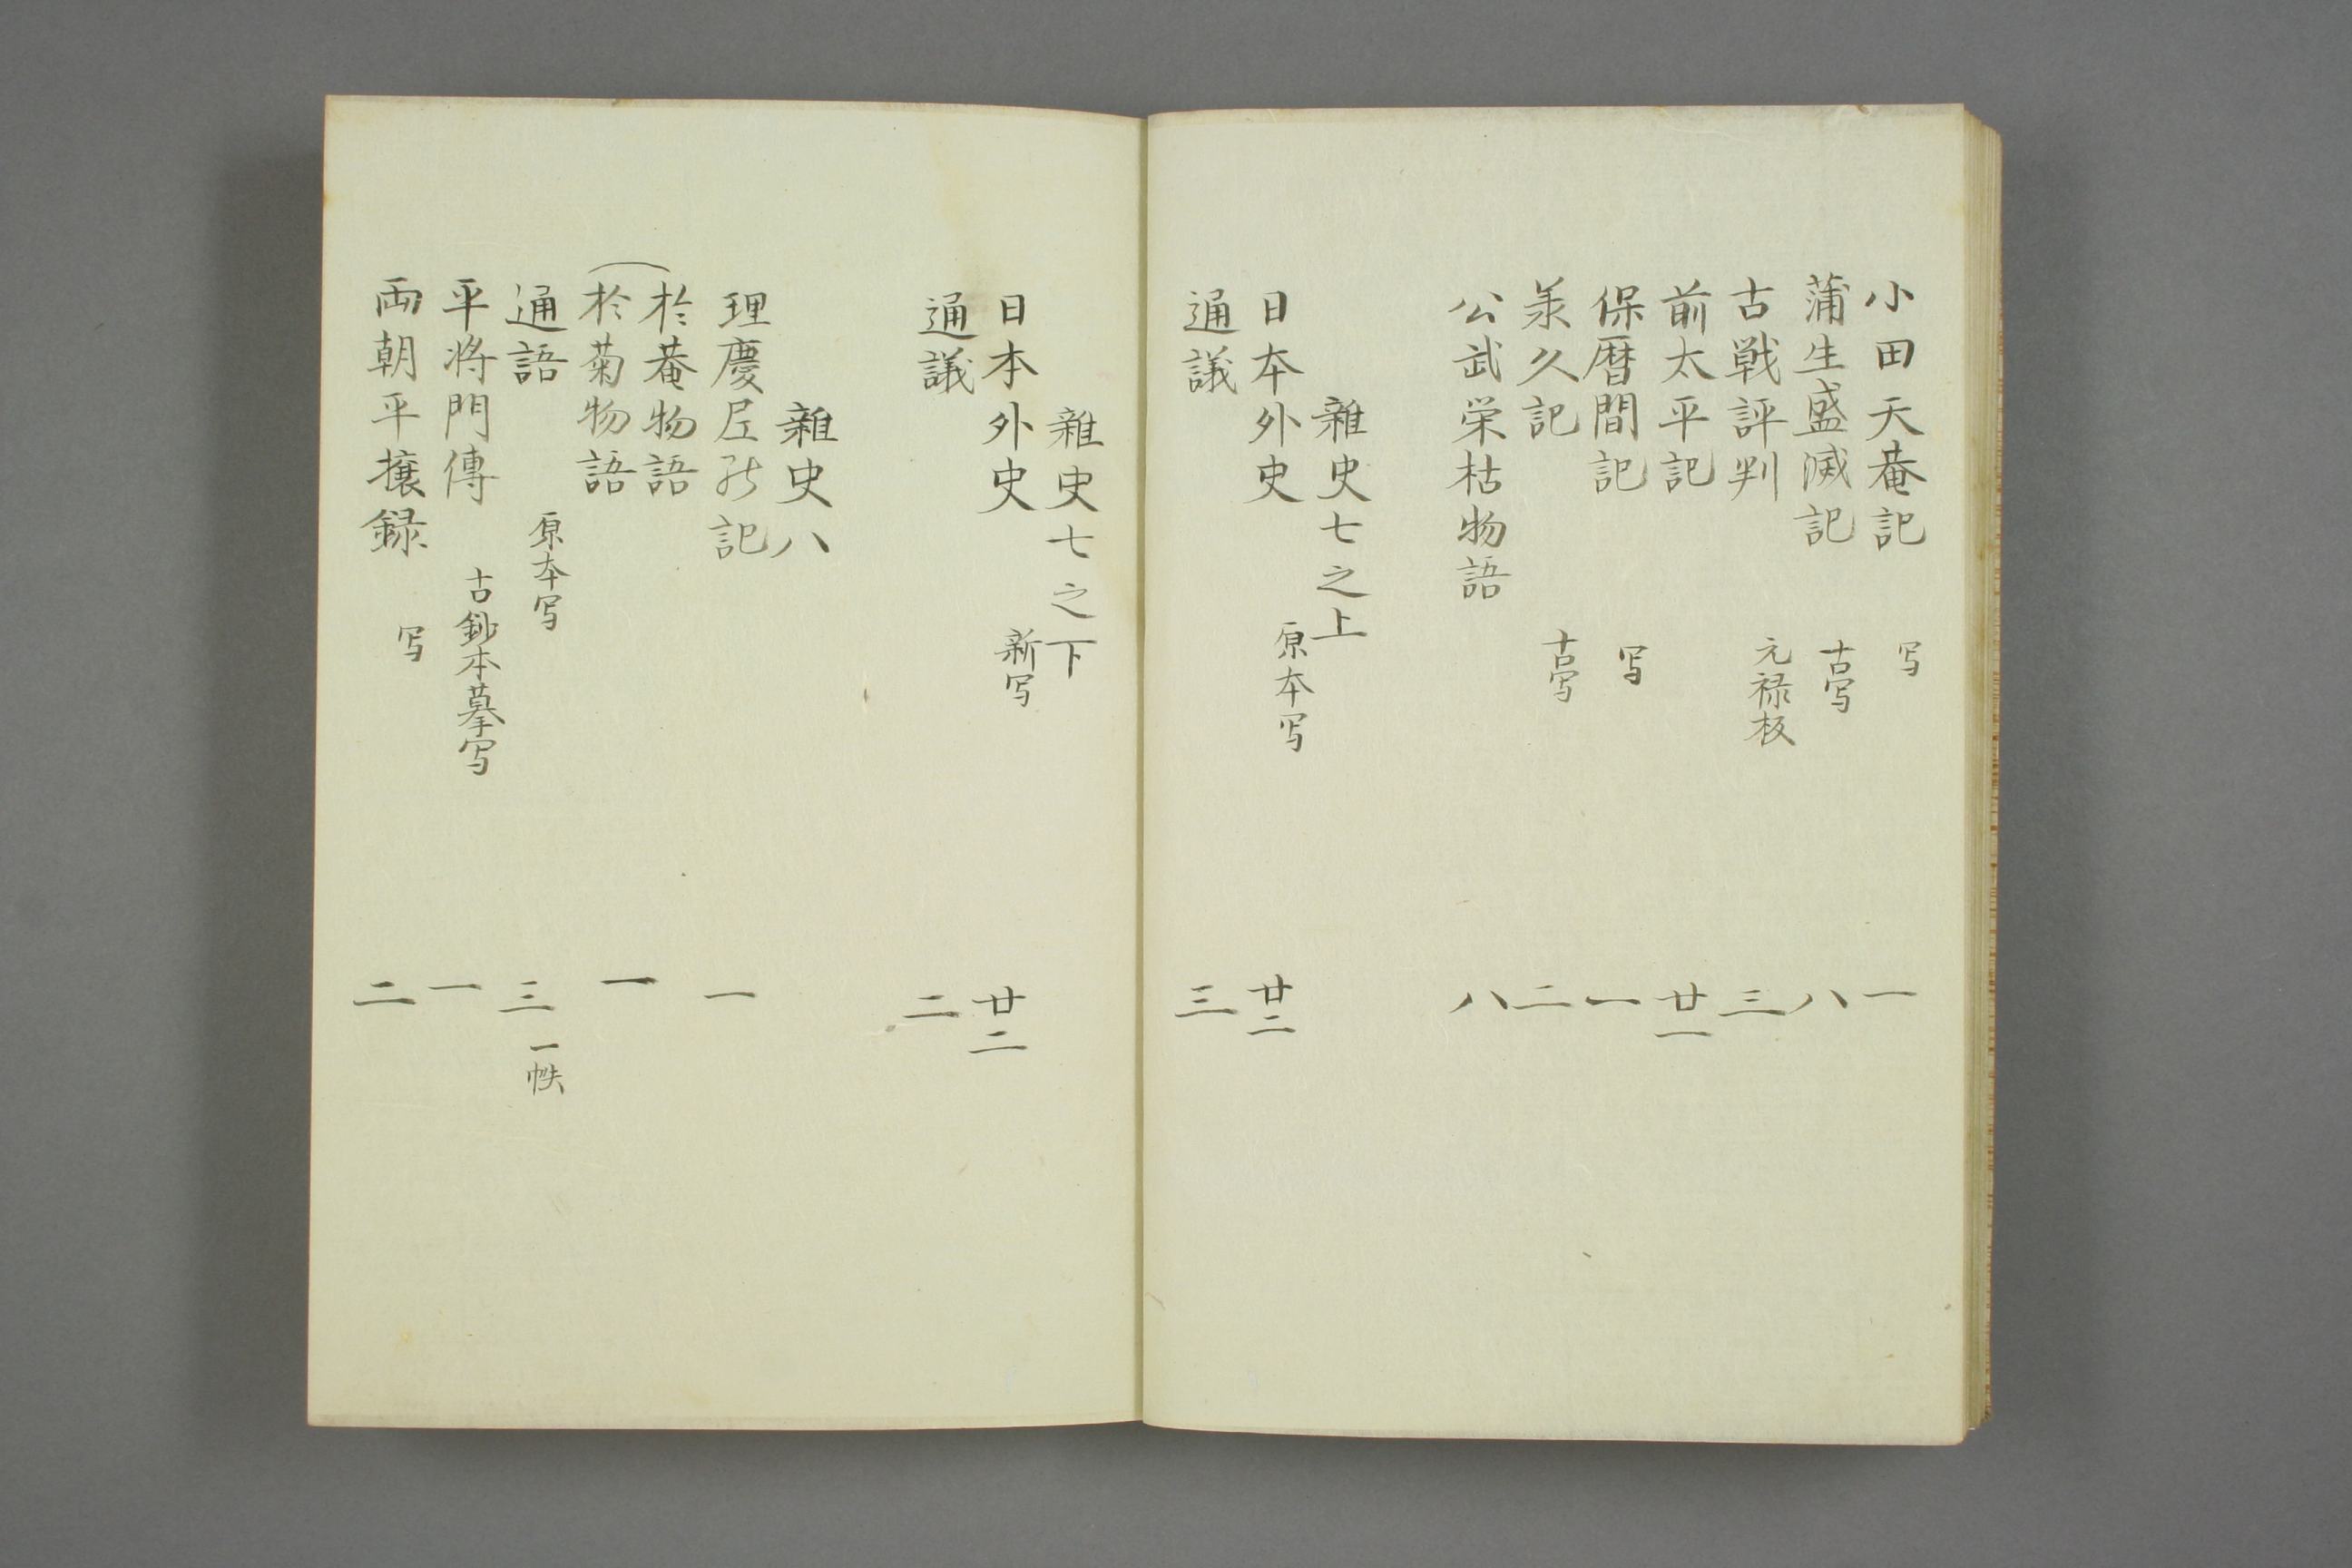 小田天菴記 写 一
蒲生盛滅記 古写 八
古戦評判 元禄板 三
前太平記 廿一
保暦間記 写 一
承久記 古写 二
公武栄枯物語 八
雑史七之上
日本外史 原本写 廿二
通議 三
雑史七之下
日本外史 新写 廿二
通議 二
雑史八
理慶尼の記 一
於菴物語
於菊物語 一
通語 原本写 三 一帙
平将門傳 古鈔本摹写 一
両朝平攘録 写 二